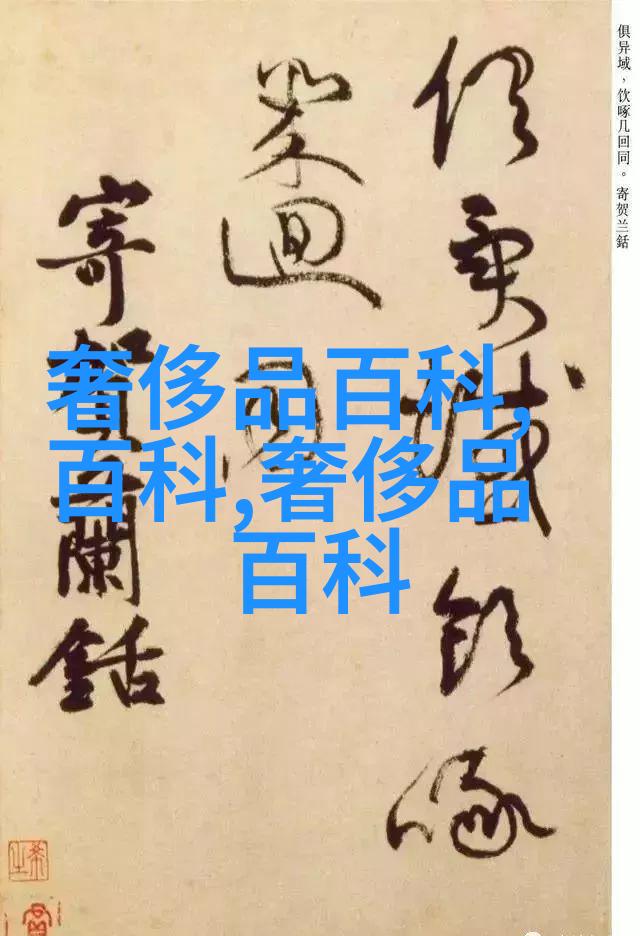 俱异域，饮啄几回同。寄贺兰銛
俱異域飲啄
幾迴同
寄賀蘭銛
奢侈品百科,
百科,奢侈品
百科